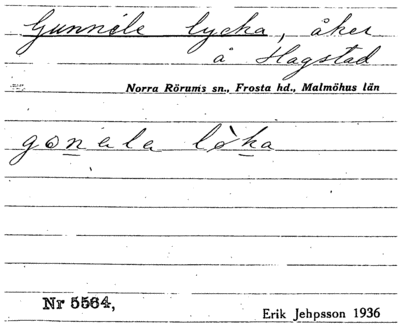 Gunnile lycka, åker
å Hagstad
Norra Rörums sn., Frosta hd., Malmöhus län
gonala lòka
Nr 5564,
Erik Jehpsson 1936